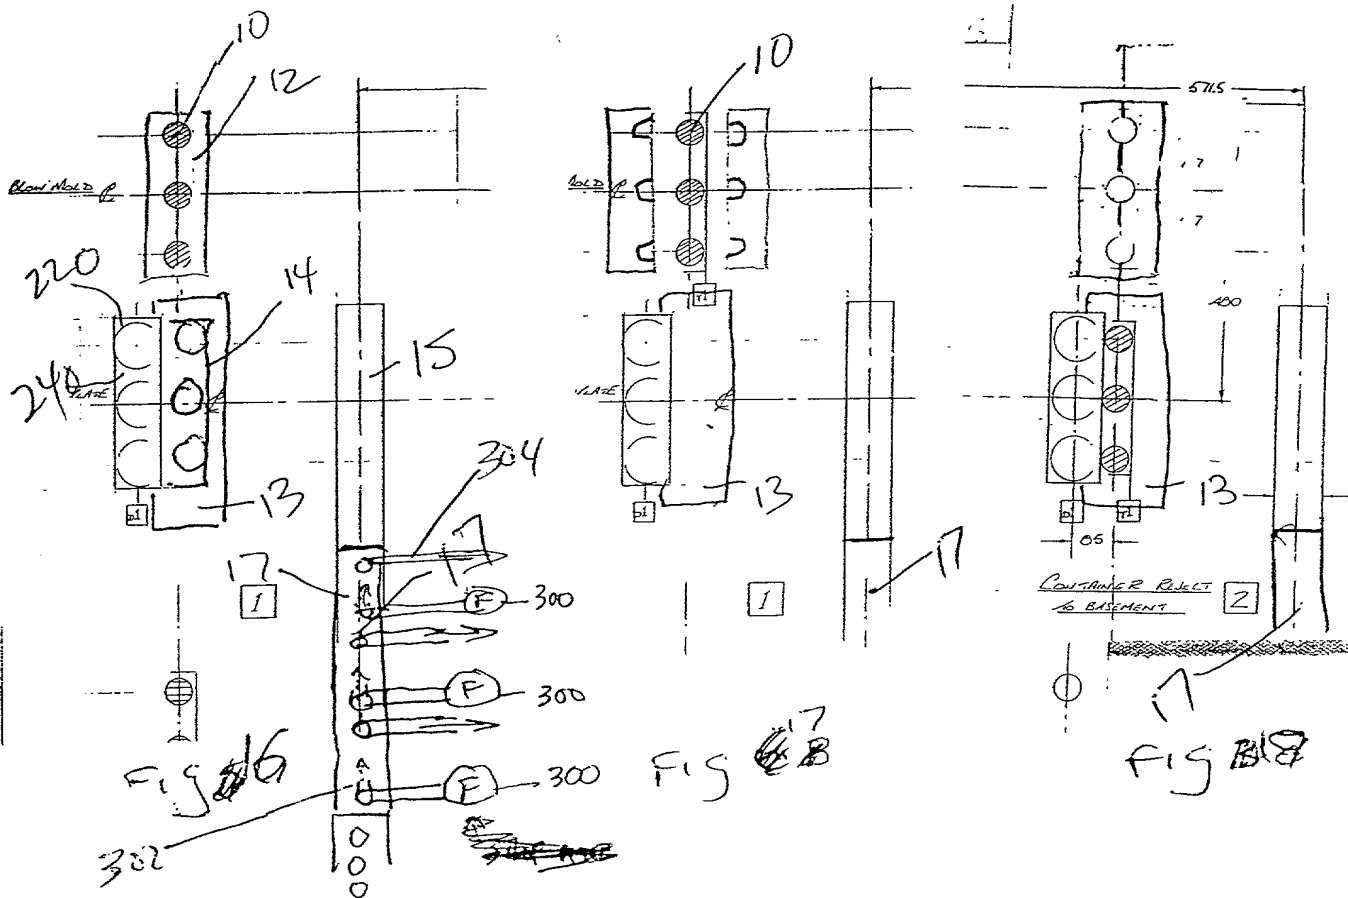 10
12
BLOW MOLD ℄
220
14
240
PLATE
15
13
D1
304
17
17
1
F
300
F
300
F
300
302
Fig 16
10
MOLD ℄
T1
PLATE
13
D1
17
1
Fig 17
571.5
480
13
D1
T1
85
CONTAINER REJECT
to BASEMENT
2
17
Fig 18